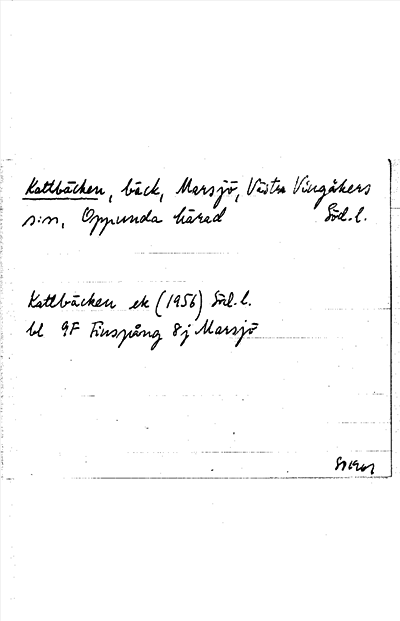 Kattbäcken, bäck, Marsjö, Västra Vingåkers
s:n, Oppunda härad Söd.l.
Kattbäcken ek (1956) Söd.l.
bl 9F Finspång 8j Marsjö